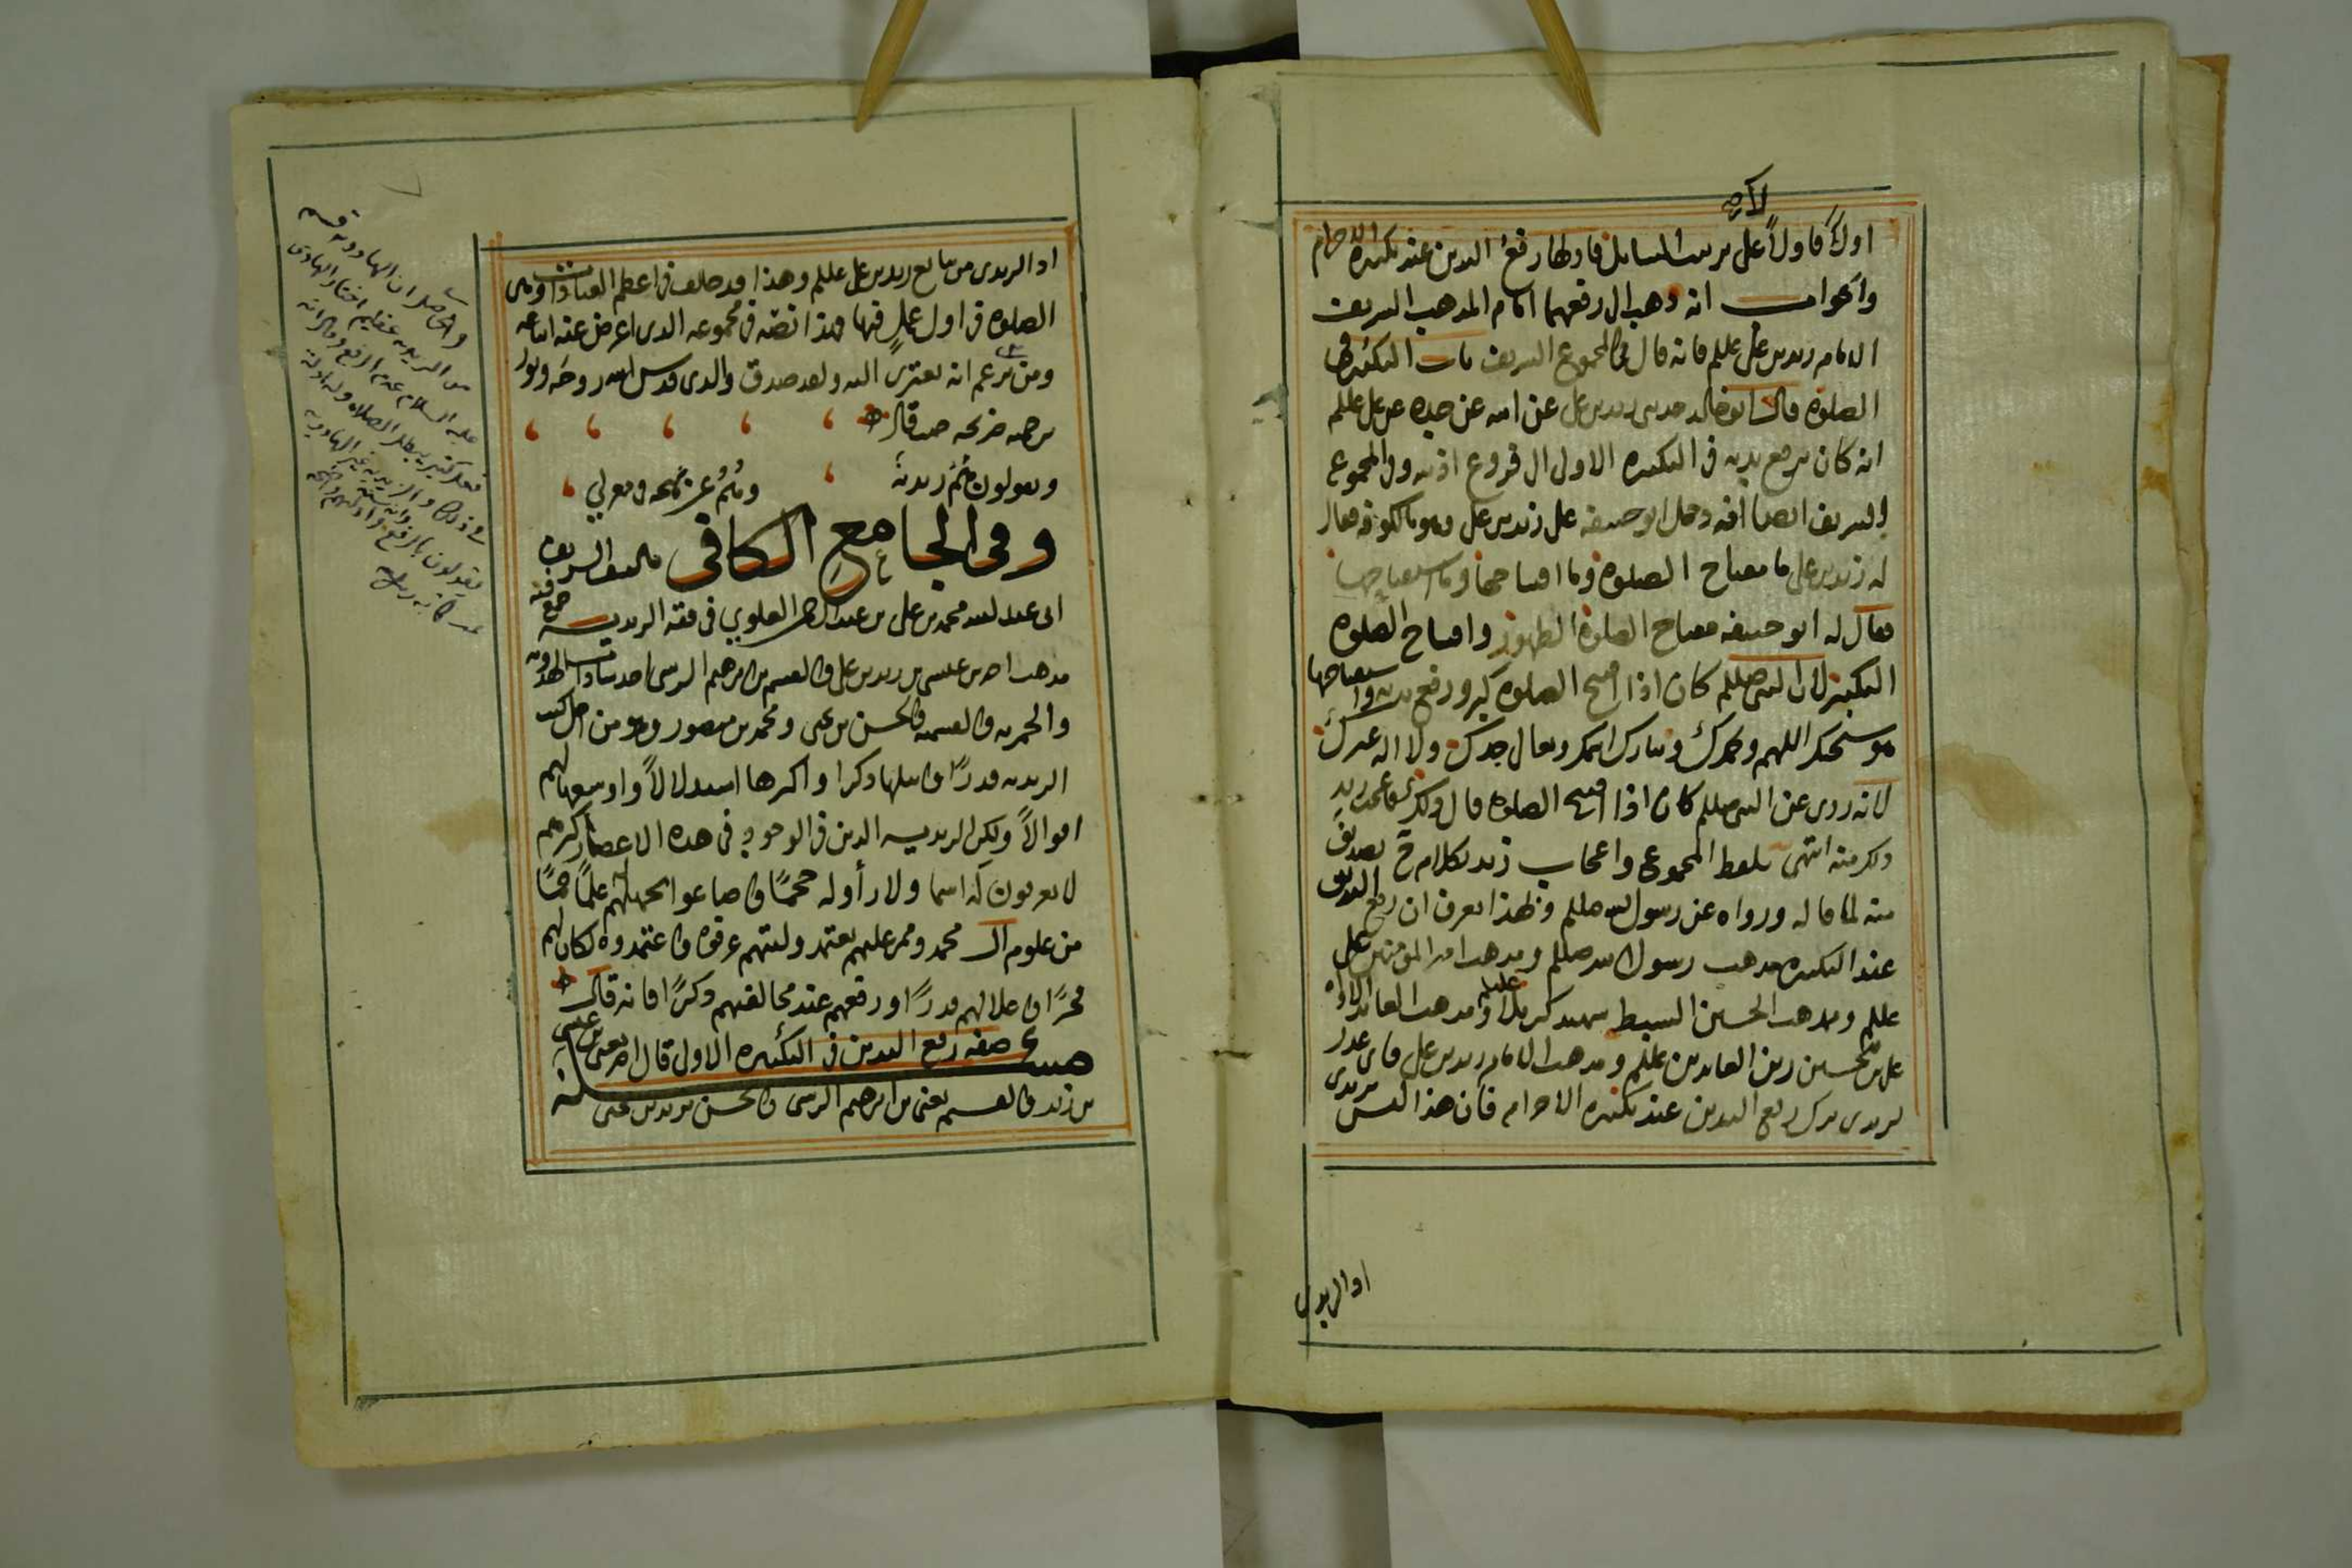 اولاً فاولاً على ترتيب المسايل فاولها رفع اليدين عند تكبيرة الاحرام
والجواب انه ذهب الى رفعهما امام المذهب الشريف
الامام زيد بن علي عللم فانه قال في المجموع الشريف باب التكبير في
الصلوة قال ابو خالد حدثني زيد بن علي عن ابيه عن جده عن علي عللم
انه كان يرفع يديه في التكبيرة الاولى الى فروع اذنيه وفي المجموع
الشريف ايضا انه دخل ابو حنيفه على زيد بن علي وهو بالكوفه فقال
له زيد بن علي ما مفتاح الصلوة وما افتتاحها وما استفتاحها
فقال له ابو حنيفه مفتاح الصلوة الطهور وافتتاح الصلوة
التكبير لان النبي صللم كان اذا افتتح الصلوة كبر ورفع يديه واستفتاحها
هو سبحنك اللهم وبحمدك وتبارك اسمك وتعالى جدك ولا اله غيرك
لانه روى عن النبي صللم كان اذا افتتح الصلوة قال ذلك فاعجب زيد
ذلك منه انتهى بلفظ المجموع واعجاب زيد لكلام ح تصديق
منه لما قاله ورواه عن رسول الله صللم وبهذا يعرف ان رفع اليدين
عند التكبيرة مذهب رسول الله صللم ومذهب امير المؤمنين علي
عللم ومذهب الحسين السبط شهيد كربلا عليلم ومذهب العابد الاواه
علي بن الحسين زين العابدين عللم ومذهب الامام زيد بن علي فاي عذر
لزيدي ترك رفع اليدين عند تكبيرة الاحرام فان هذا ليس بزيدي
اذ الزيدي
اذ الزيدي من تابع زيد بن علي عللم وهذا قد خالف في اعظم العبادات وهي
الصلوة في اول عمل فيها وهذا نصه في مجموعه الذي اعرض عنه اتباعه
ومن يزعم انه يعتزى اليه ولقد صدق والدي قدس الله روحه ونور
ضريحه حيث قال
ويقولون هم زيدية وهم عن نهجه في معزل
وفي الجامع الكافي تاليف الشريف
ابي عبد الله محمد بن علي بن عبد الرحمن العلوي في فقه الزيدية جمع فيه
مذهب احمد بن عيسى بن زيد بن علي والقسم بن ابرهيم الرسي احد سادات
والقسم والحسن بن يحيى ومحمد بن منصور وهو من اجل كتب
الزيديه قدرًا وانبلها ذكرا واكثرها استدلالاً واوسعها لهم
اقوالاً ولكن الزيديه الذين في الوجود في هذه الاعصار اكثرهم
لا يعرفون له اسما ولا رأوا له حجمًا واضاعوا بجهلهم علمًا جمًا
من علوم آل محمد وممن عليهم يعتمد وليتهم عرفوه واعتمدوه لكان لهم
فخرًا واعلا لهم قدرًا ورفعهم عند مخالفيهم ذكرًا فانه قال
مسئلة صفة رفع اليدين في التكبيرة الاولى قال احمد يعني بن عيسى
بن زيد والقسم يعني بن ابرهيم الرسي والحسن يريد بن يحيى
والحاصل ان الهادويه قسم
من الزيديه عظيم اختار الهادي
عليه السلام عدم الرفع وقال انه
فعل كثير يبطل الصلاة وله ادلة
في ذلك والزيديه غير الهادويه
يقولون بالرفع وانه سنة وادلتهم واضحه